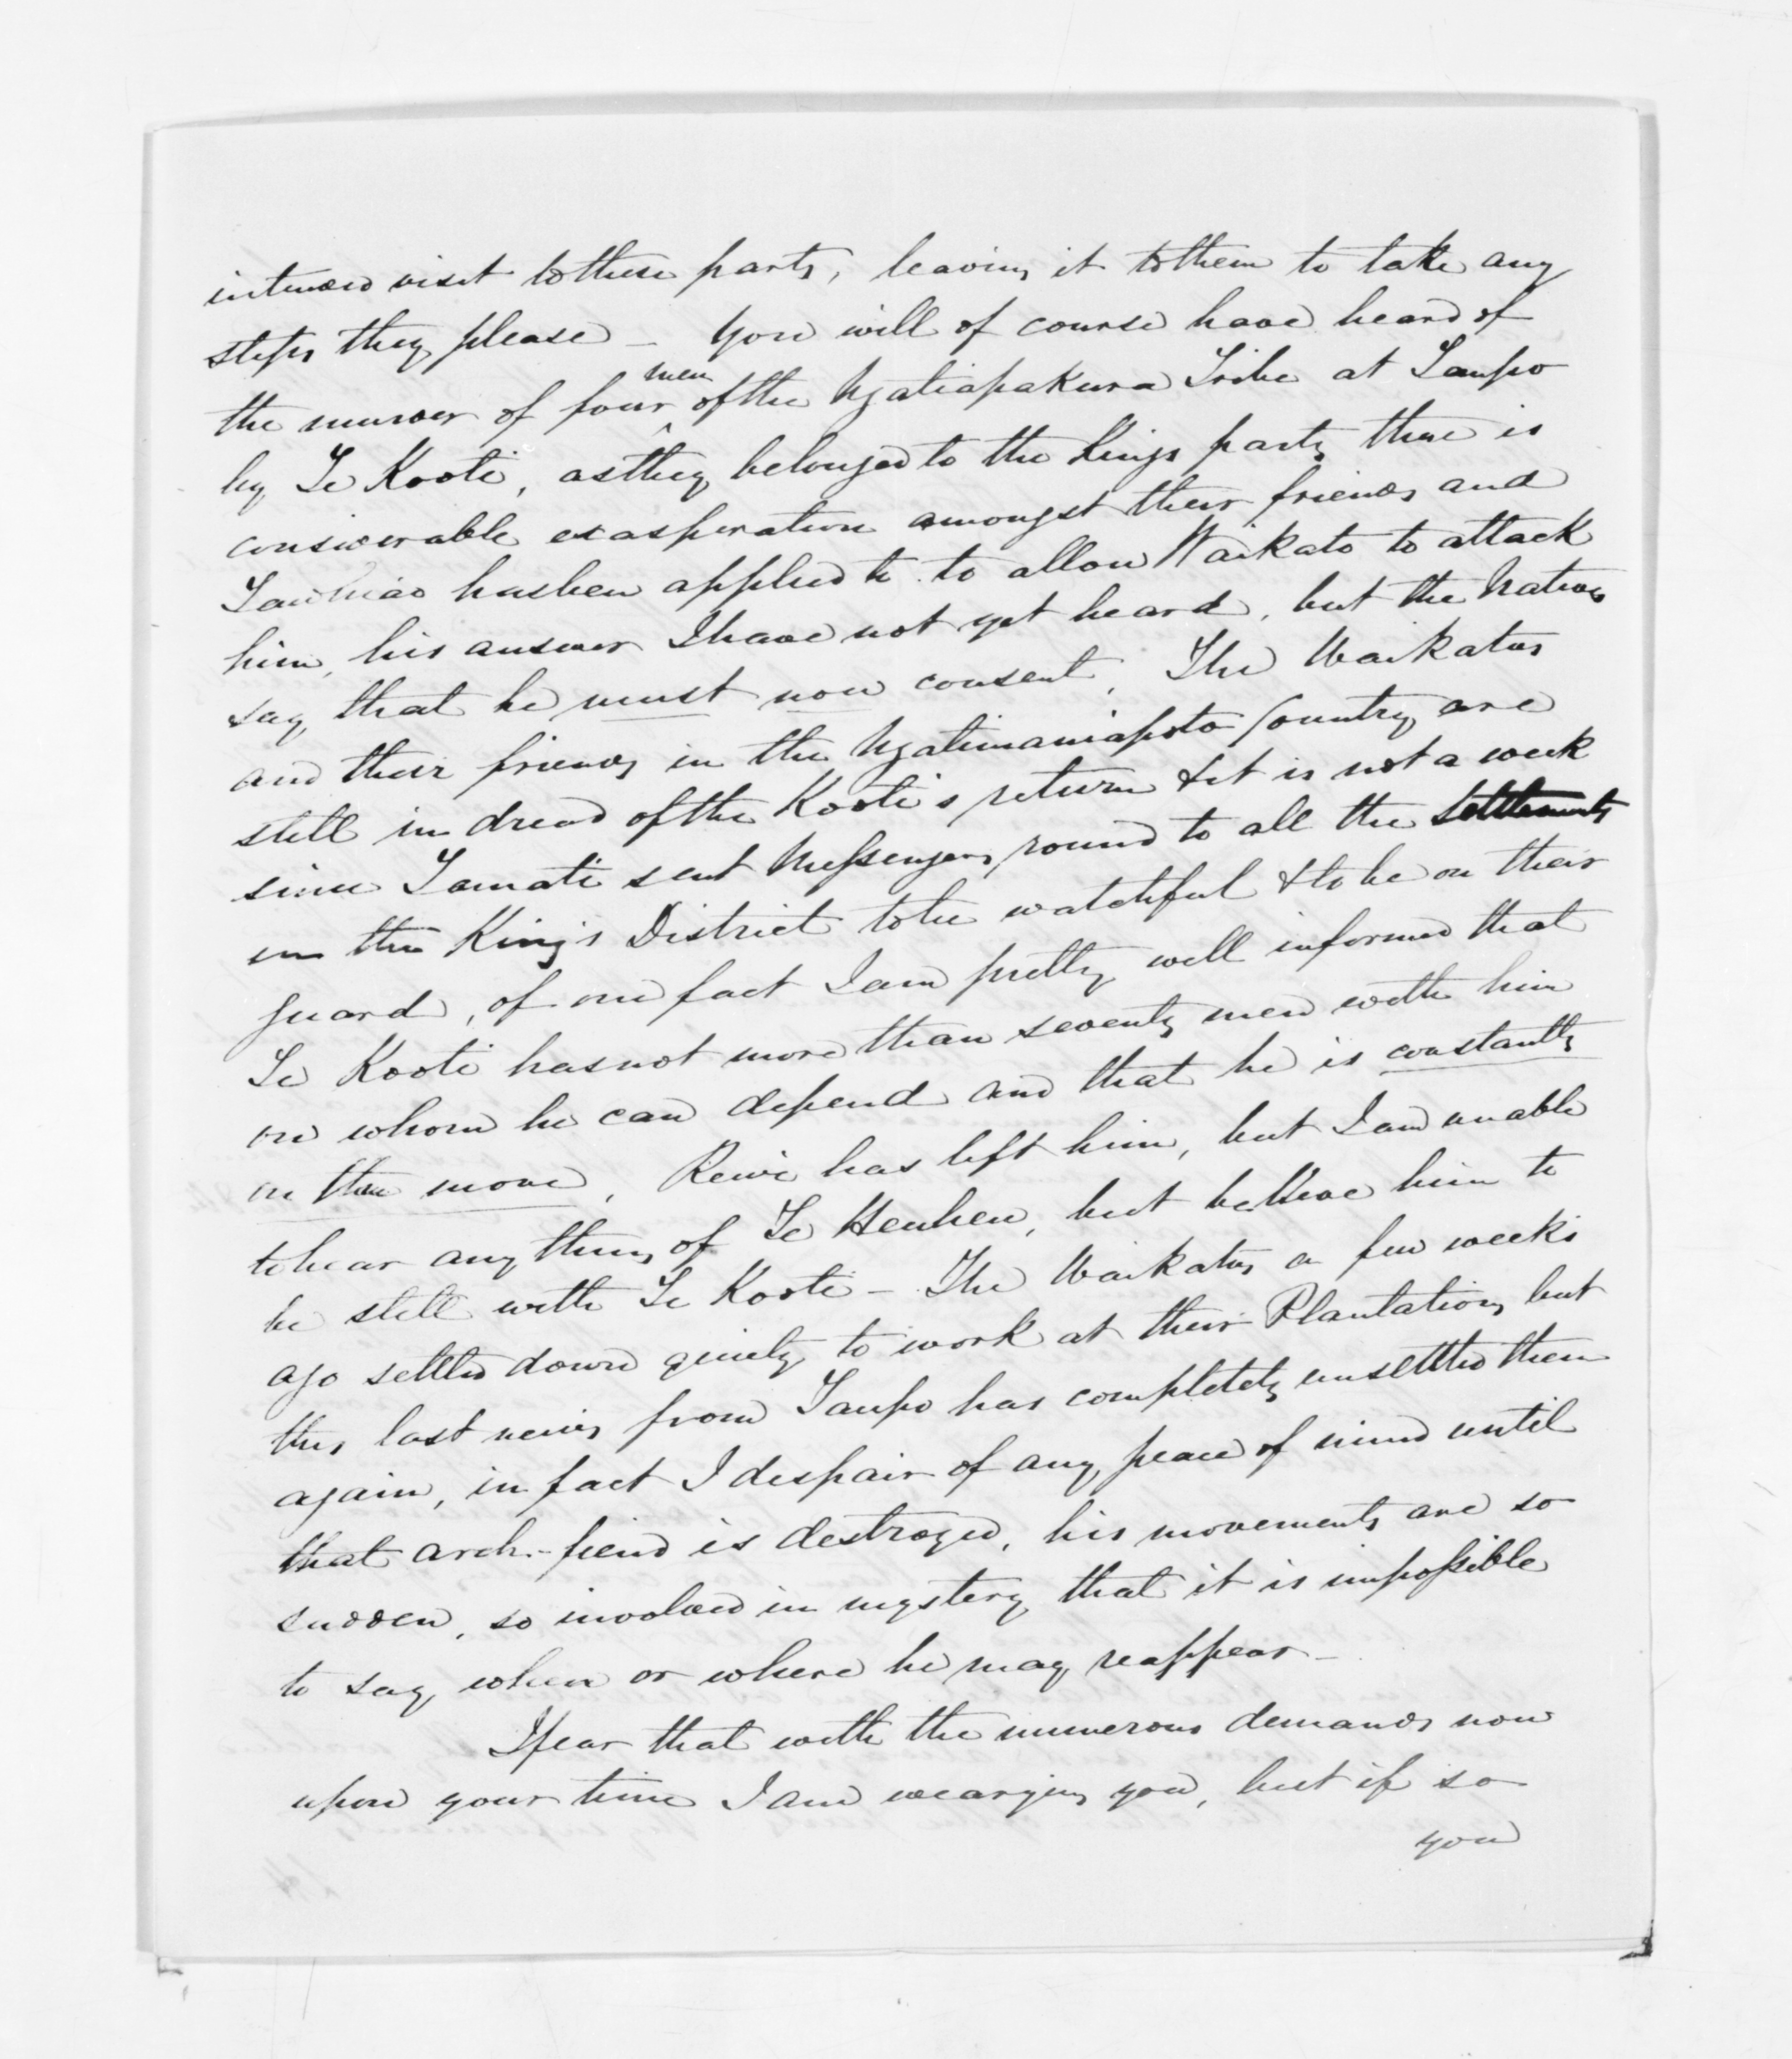 intended visit to these parts, leaving it to them to take any
steps they please _ You will of course have heard of
the murder of four men of the Ngatiapakura Tribe at Taupo
by Te Kooti, as they belonged to the Kings party there is
considerable exasperation amongst their friends and
Tawhiao has been applied to to allow Waikato to attack
him, his answer I have not yet heard, but the Natives
say that he must now consent. The Waikatos
and their friends in the Ngatimaniapoto Country are
still in dread of the Kooti's return & it is not a week
since Tamati sent Messengers round to all the Settlements
in the King's District to be watchful & to be on their
guard, of one fact I am pretty well informed that
Te Kooti has not more than seventy men with him
on whom he can depend and that he is constantly
on the move, Rewi has left him, but I am unable
to hear any thing of Te Heuheu, but believe him to
be still with Te Kooti - The Waikatos a few weeks
ago settled down quietly to work at their Plantations but
this last news from Taupo has completely unsettled them
again, in fact I despair of any peace of mind until
that arch-fiend is destroyed, his movements are so
sudden, so involved in mystery that it is impossible
to say when or where he may reappear _
I fear that with the numerous demands now
upon your time I am wearying you, but if so
you